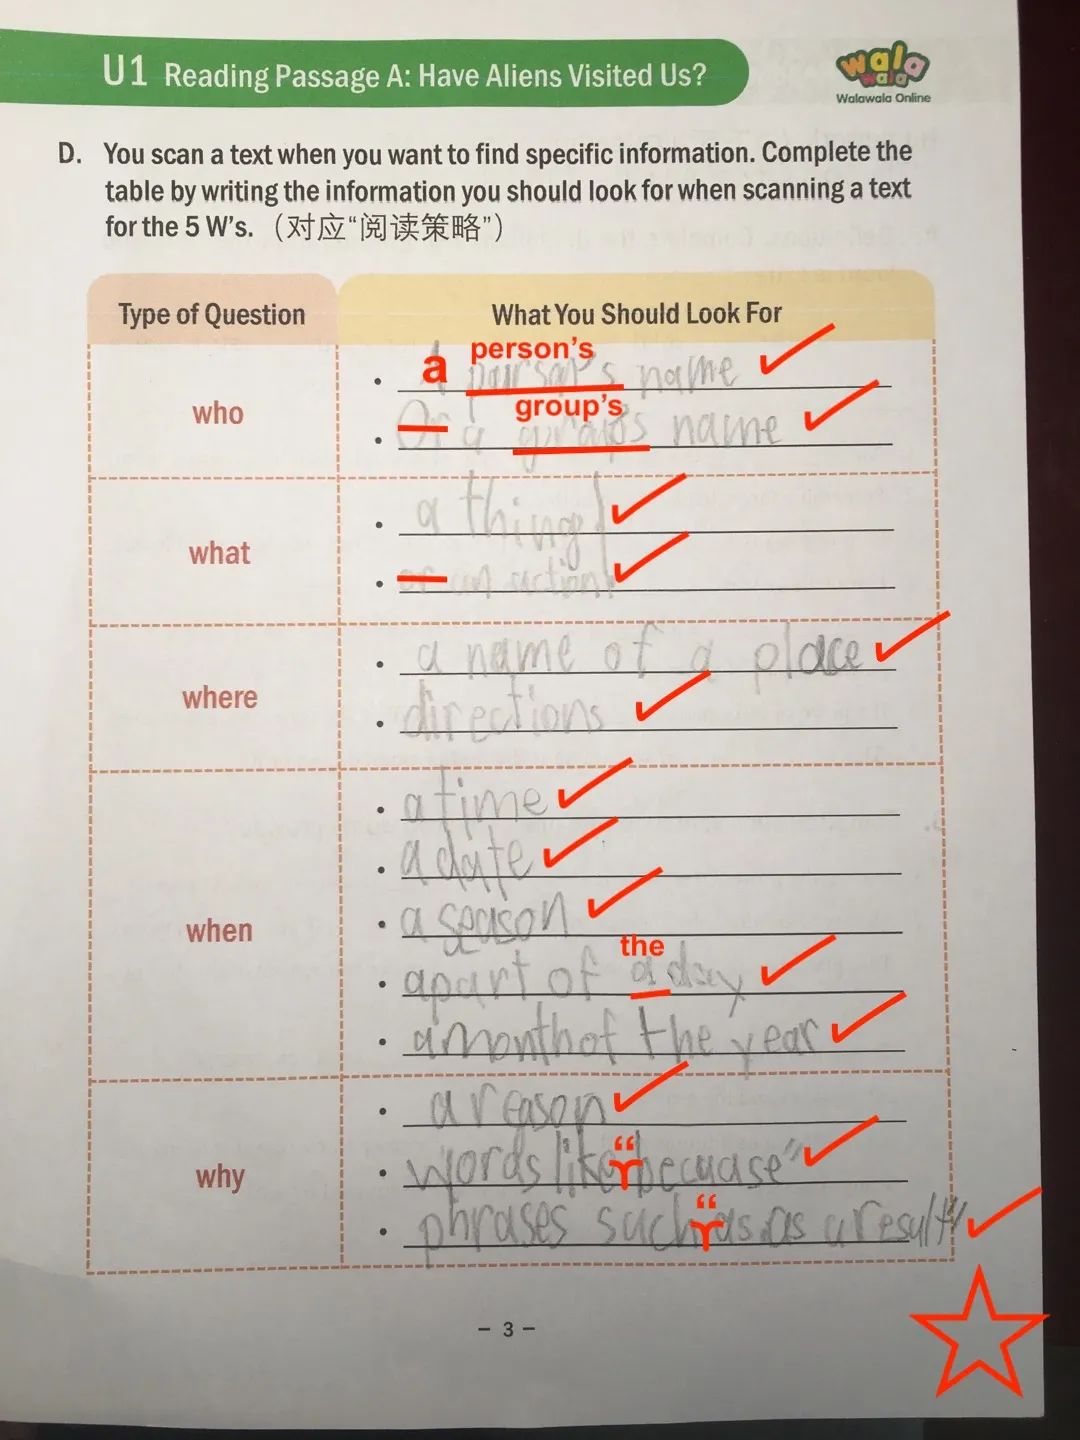 U1 Reading Passage A: Have Aliens Visited Us?
wala
wala
Walawala Online
D. You scan a text when you want to find specific information. Complete the
table by writing the information you should look for when scanning a text
for the 5 W's. （对应“阅读策略”）
Type of Question
What You Should Look For
who
a person's
• A name
group's
• Or a name
what
• a thing
• or an action
where
• a name of a place
• directions
when
• a time
• a date
• a season
the
• a part of a day
• a month of the year
why
• a reason
“
• words like becuase”
“
• phrases such as as a result”
– 3 –